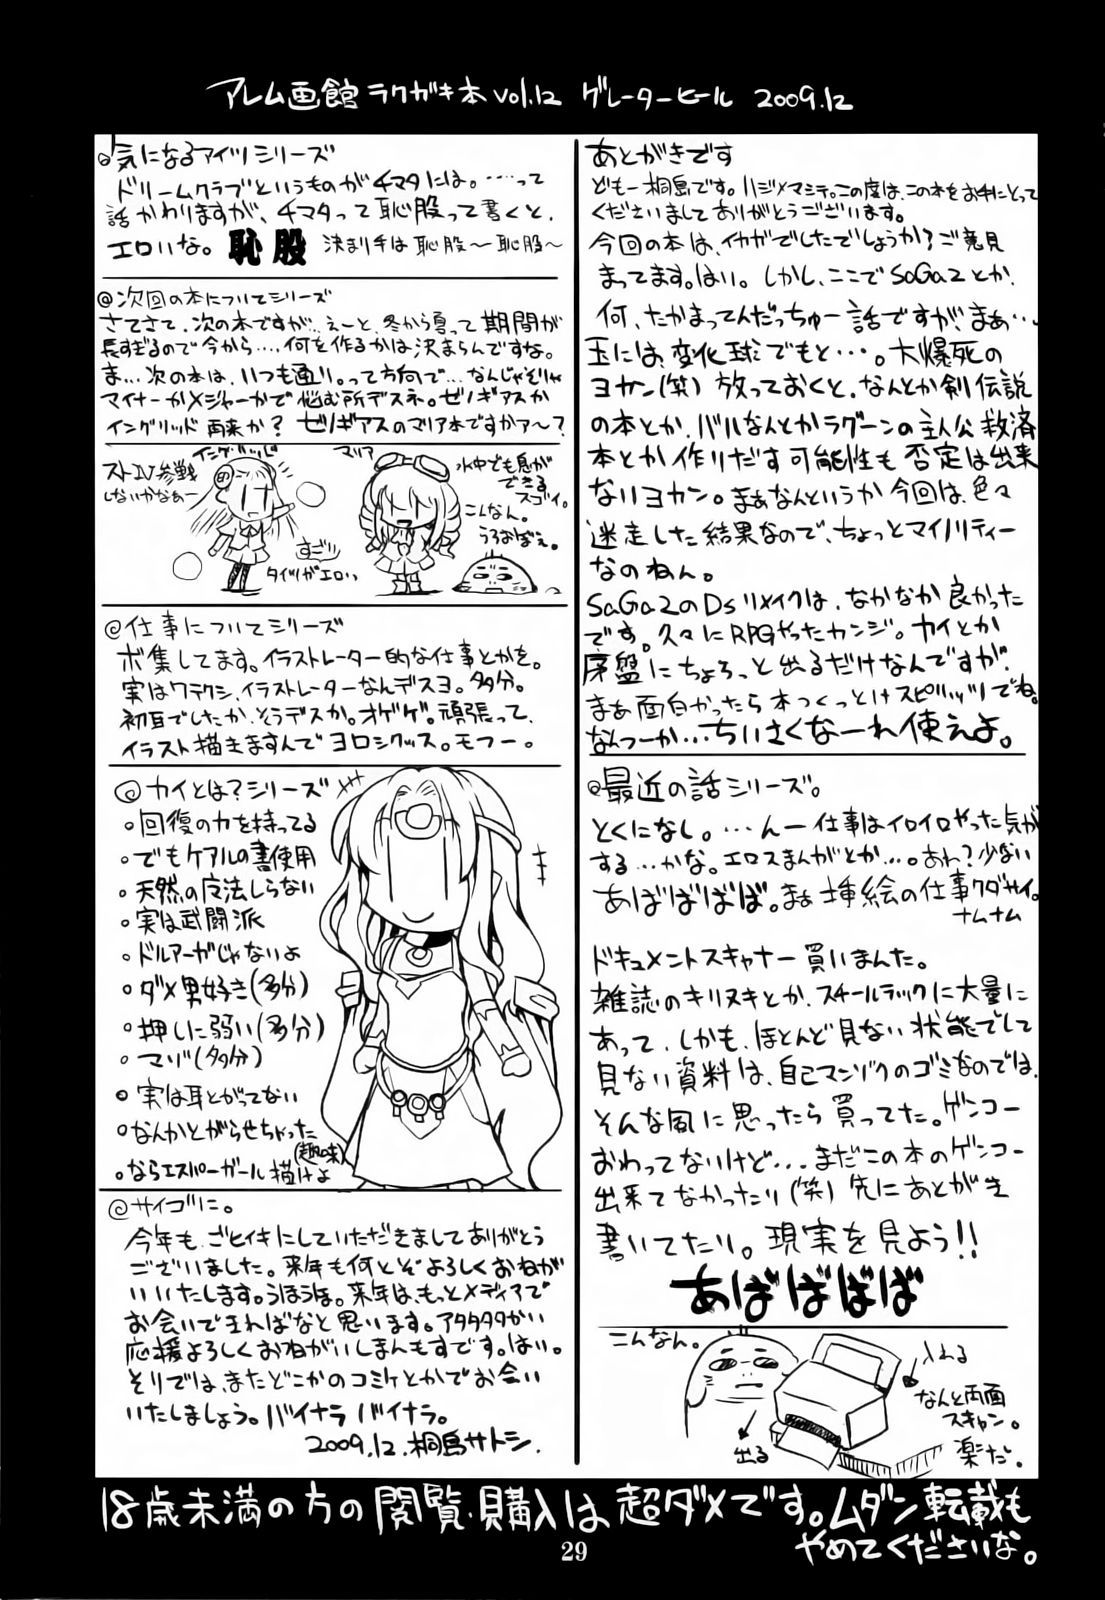 アレム画館 ラクガキ本 vol.12 グレーターヒール 2009.12
あとがきです
ども一桐島です。ハジメマシテ。この度は、この本をお手にとって
くださいましてありがとうございます。
今回の本は、イカガでしたでしょうか?ご意見
まってます。はい。しかし、ここでSaGa2とか、
何、たかまってんだっちゅー話ですが、まぁ…、
玉には、変化球でもと…。大爆死の
ヨカン(笑) 放っておくと、なんとか剣伝説
の本とか、バルなんとかラグーンの主人公救済
本とか作りだす可能性も否定は出来
ないヨカン。まぁなんというか今回は、色々
迷走した結果なので、ちょっとマイノリティー
なのねん。
SaGa2のDsリメイクは、なかなか良かった
です。久々にRPGやったカンジ。カイとか
序盤にちょろっと出るだけなんですが、
まぁ面白かったら本つくっとけスピリッツでね。
なんつーか…ちいさくなーれ使えよ。
@最近の話シリーズ。
とくになし。…んー仕事はイロイロやった気が
する…かな。エロスまんがとか…。あわ?少ない
あばばばば。まぁ挿絵の仕事クダサイ。
ナムナム
ドキュメントスキャナー買いまんた。
雑誌のキリヌキとか、スチールラックに大量に
あって、しかも、ほとんど見ない状態でして
見ない資料は、自己マンゾクのゴミなのでは、
そんな風に思ったら買ってた。ゲンコー
おわってないけど…まだこの本のゲンコー
出来てなかったり(笑) 先にあとがき
書いてたり。現実を見よう!!
あばばばば
こんなん。
入れる
なんと両面
スキャン。
楽だ。
出る
@気になるアイツシリーズ
ドリームクラブというものがチマタには。……って
話かわりますが、チマタって恥股って書くと、
エロいな。恥股 決まり手は恥股〜恥股〜
@次回の本についてシリーズ
さてさて、次の本ですが…えーと、冬から夏って期間が
長すぎるので今から…、何を作るかは決まらんですな。
ま…次の本は、いつも通り。って方向で…なんじゃそりゃ
マイナーかメジャーかで悩む所デスネ。ゼノギアスか
イングリッド再来か? ゼノギアスのマリア本ですかァ〜?
イングリッド
ストIV参戦
しないかなぁー
すごい
タイツがエロい
マリア
水中でも息が
できる
スゴイ。
こんなん。
うろおぼえ。
@仕事についてシリーズ
ボ集してます。イラストレーター的な仕事とかを。
実はワテクシ、イラストレーターなんデスヨ。多分。
初耳でしたか、そうデスか。オゲゲ。頑張って、
イラスト描きますんでヨロシクッス。モフー。
@カイとは?シリーズ
。回復の力を持ってる
。でもケアルの書使用
。天然の魔法しらない
。実は武闘派
。ドルアーガじゃないよ
。ダメ男好き(多分)
。押しに弱い(多分)
。マゾ(多分)
。実は耳とがってない
。なんかとがらせちゃった
(趣味)
。ならエスパーガール描けよ
@サイゴに。
今年も、ごヒイキにしていただきましてありがとう
ございました。来年も何とぞよろしくおねがい
いたします。うほうほ。来年は、もっとメディアで
お会いできればなと思います。アタタタタかい
応援よろしくおねがいしまんもすです。はい。
そりでは、またどこかのコミケとかでお会い
いたしましょう。バイナラバイナラ。
2009.12.桐島サトシ.
18歳未満の方の閲覧・購入は超ダメです。ムダン転載も
やめてくださいな。
29